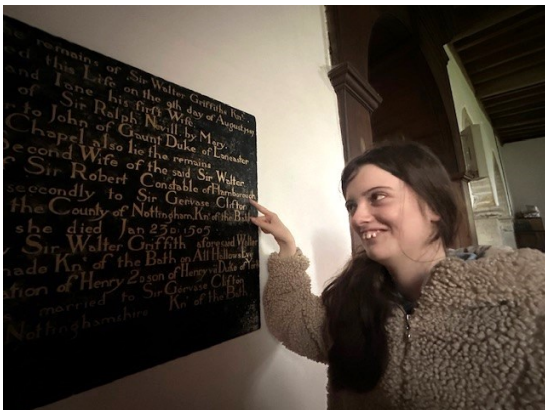 remains of Sir Walter Griffithe Kn.t
this Life on the 9th day of August
and Jane his first Wife
of Sir Ralph Nevill by Mary
to John of Gaunt Duke of Lancaster
Chapel also lie the remains
Second Wife of the said Sir Walter
Sir Robert Constable of Flamborough
secondly to Sir Gervase Clifton
the County of Nottingham. Kn.t of the Bath
she died Jan 23d 1505
Sir Walter Griffith aforesaid Walter
made Kn.t of the Bath on All Hallows Day
of Henry 2d son of Henry VII Duke of York
married to Sir Gervase Clifton
Nottinghamshire Kn.t of the Bath